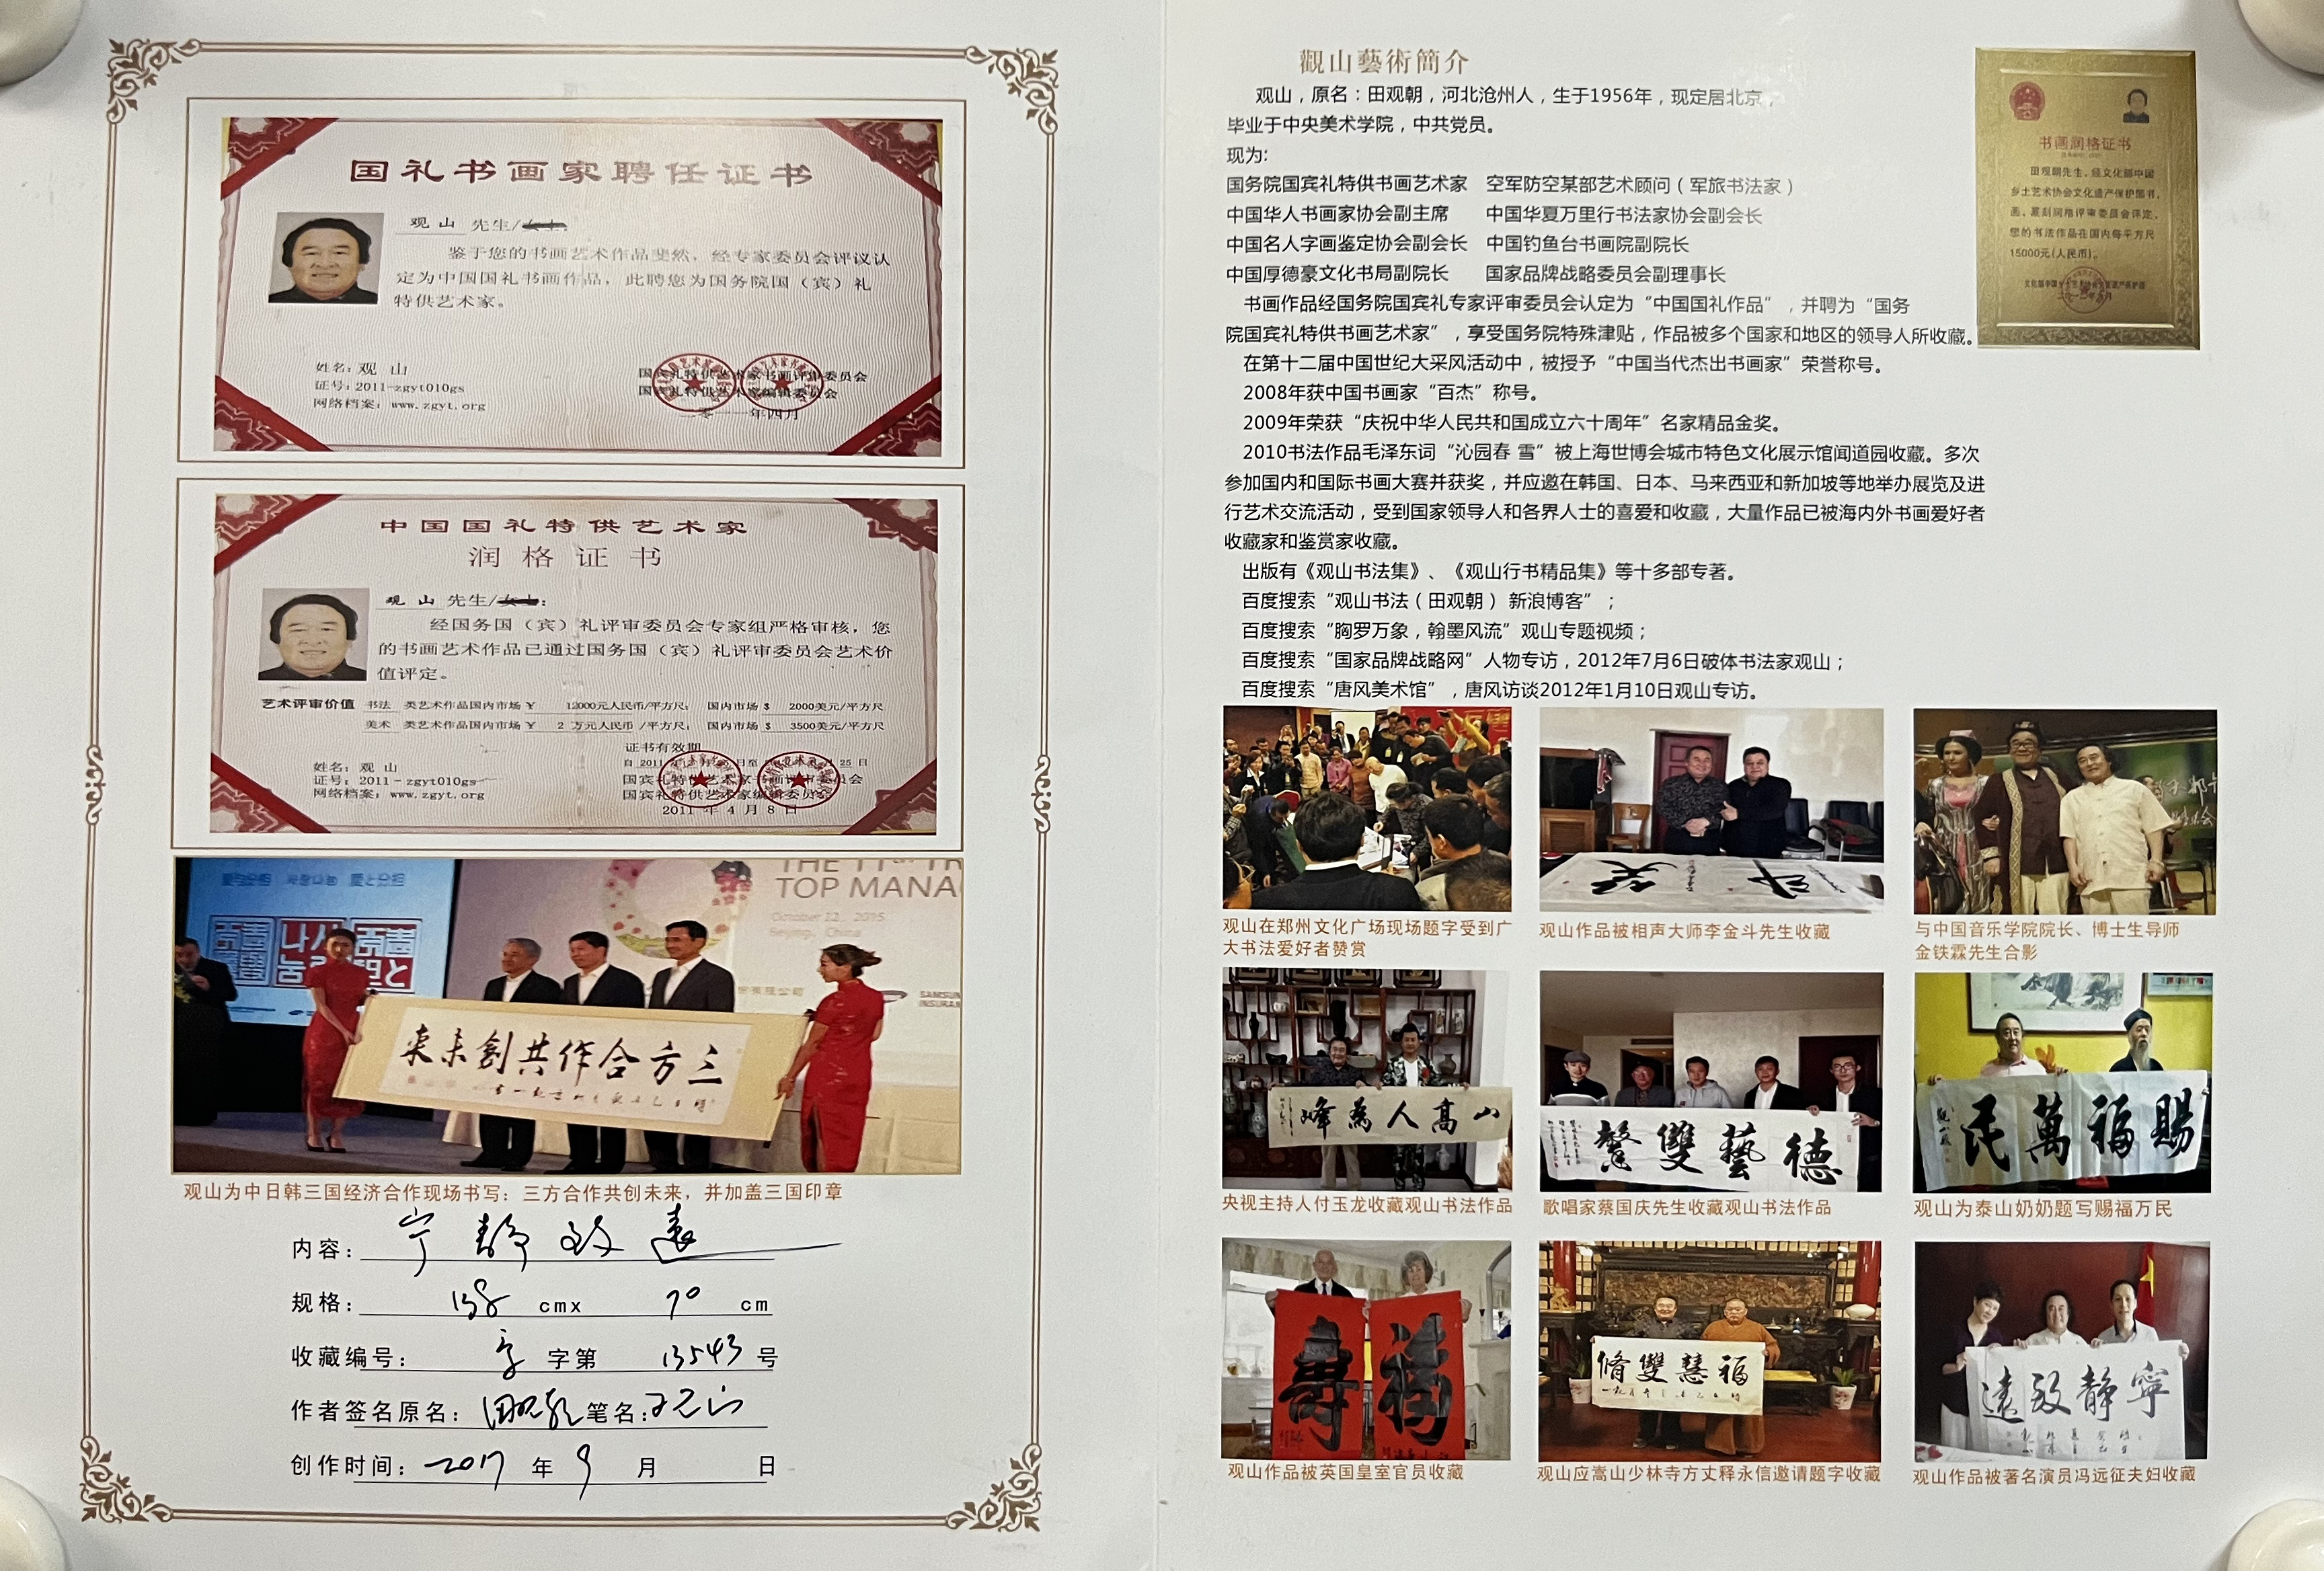 国礼书画家聘任证书
观 山 先生/女士:
鉴于您的书画艺术作品斐然，经专家委员会评议认
定为中国国礼书画作品，此聘您为国务院国（宾）礼
特供艺术家。
姓名: 观 山
证号: 2011-zgyt010gs
网络档案: www.zgyt.org
国宾礼特供艺术家书画评审委员会
国宾礼特供艺术家编辑委员会
二零一一年四月
中国国礼特供艺术家
润格证书
观 山 先生/女士:
经国务国（宾）礼评审委员会专家组严格审核，您
的书画艺术作品已通过国务国（宾）礼评审委员会艺术价
值评定。
艺术评审价值 书法 类艺术作品国内市场 ¥ 12000元人民币/平方尺; 国内市场 $ 2000美元/平方尺
美术 类艺术作品国内市场 ¥ 2 万元人民币 /平方尺; 国内市场 $ 3500美元/平方尺
证书有效期
姓名: 观 山
证号: 2011-zgyt010gs
网络档案: www.zgyt.org
国宾礼特供艺术家书画评审委员会
国宾礼特供艺术家编辑委员会
2011 年 4 月 8 日
TOP MANA
October 12, 2015
Beijing, China
SAMSUN
三方合作共創未来
观山为中日韩三国经济合作现场书写：三方合作共创未来，并加盖三国印章
内容: 宁静致远
规格: 138 cmx 70 cm
收藏编号: 字第 13543 号
作者签名原名: 田观朝 笔名:
创作时间: 2017 年 9 月 日
觀山藝術簡介
观山，原名：田观朝，河北沧州人，生于1956年，现定居北京，
毕业于中央美术学院，中共党员。
现为:
国务院国宾礼特供书画艺术家 空军防空某部艺术顾问（军旅书法家）
中国华人书画家协会副主席 中国华夏万里行书法家协会副会长
中国名人字画鉴定协会副会长 中国钓鱼台书画院副院长
中国厚德豪文化书局副院长 国家品牌战略委员会副理事长
书画作品经国务院国宾礼专家评审委员会认定为“中国国礼作品”，并聘为“国务
院国宾礼特供书画艺术家”，享受国务院特殊津贴，作品被多个国家和地区的领导人所收藏。
在第十二届中国世纪大采风活动中，被授予“中国当代杰出书画家”荣誉称号。
2008年获中国书画家“百杰”称号。
2009年荣获“庆祝中华人民共和国成立六十周年”名家精品金奖。
2010书法作品毛泽东词“沁园春 雪”被上海世博会城市特色文化展示馆闻道园收藏。多次
参加国内和国际书画大赛并获奖，并应邀在韩国、日本、马来西亚和新加坡等地举办展览及进
行艺术交流活动，受到国家领导人和各界人士的喜爱和收藏，大量作品已被海内外书画爱好者
收藏家和鉴赏家收藏。
出版有《观山书法集》、《观山行书精品集》等十多部专著。
百度搜索“观山书法（田观朝） 新浪博客”；
百度搜索“胸罗万象，翰墨风流”观山专题视频；
百度搜索“国家品牌战略网”人物专访，2012年7月6日破体书法家观山；
百度搜索“唐风美术馆”，唐风访谈2012年1月10日观山专访。
书画润格证书
田观朝先生，经文化部中国
乡土艺术协会文化遗产保护部书、
画、篆刻润格评审委员会评定，
您的书法作品在国内每平方尺
15000元(人民币)。
观山在郑州文化广场现场题字受到广
大书法爱好者赞赏
观山作品被相声大师李金斗先生收藏
与中国音乐学院院长、博士生导师
金铁霖先生合影
山高人為峰
央视主持人付玉龙收藏观山书法作品
德藝雙馨
歌唱家蔡国庆先生收藏观山书法作品
賜福萬民
观山为泰山奶奶题写赐福万民
福 壽
观山作品被英国皇室官员收藏
福慧雙脩
观山应嵩山少林寺方丈释永信邀请题字收藏
寧静致遠
观山作品被著名演员冯远征夫妇收藏